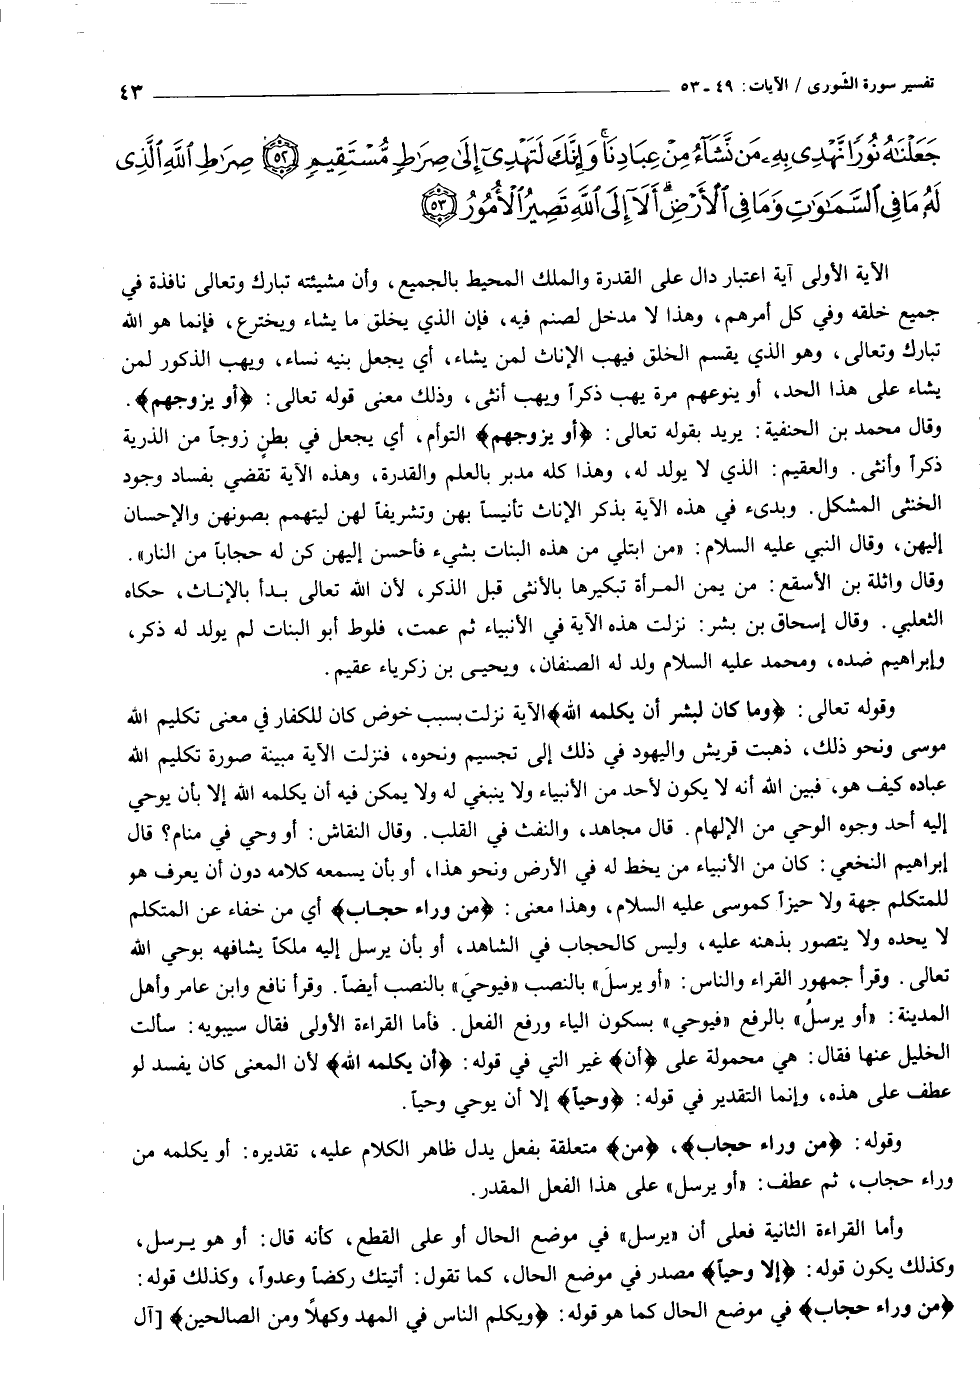 تفسير سورة الشورى / الآيات: ٤٩ ـ ٥٣ ٤٣
جَعَلْنَٰهُ نُورًا نَّهْدِى بِهِۦ مَن نَّشَآءُ مِنْ عِبَادِنَا ۚ وَإِنَّكَ لَتَهْدِىٓ إِلَىٰ صِرَٰطٍ مُّسْتَقِيمٍ ٥٢ صِرَٰطِ ٱللَّهِ ٱلَّذِى
لَهُۥ مَا فِى ٱلسَّمَٰوَٰتِ وَمَا فِى ٱلْأَرْضِ ۗ أَلَآ إِلَى ٱللَّهِ تَصِيرُ ٱلْأُمُورُ ٥٣
الآية الأولى آية اعتبار دال على القدرة والملك المحيط بالجميع، وأن مشيئته تبارك وتعالى نافذة في
جميع خلقه وفي كل أمرهم، وهذا لا مدخل لصنم فيه، فإن الذي يخلق ما يشاء ويخترع، فإنما هو الله
تبارك وتعالى، وهو الذي يقسم الخلق فيهب الإناث لمن يشاء، أي يجعل بنيه نساء، ويهب الذكور لمن
يشاء على هذا الحد، أو ينوعهم مرة يهب ذكراً ويهب أنثى، وذلك معنى قوله تعالى: ﴿أو يزوجهم﴾.
وقال محمد بن الحنفية: يريد بقوله تعالى: ﴿أو يزوجهم﴾ التوأم، أي يجعل في بطنٍ زوجاً من الذرية
ذكراً وأنثى. والعقيم: الذي لا يولد له، وهذا كله مدبر بالعلم والقدرة، وهذه الآية تقضي بفساد وجود
الخنثى المشكل. وبدىء في هذه الآية بذكر الإناث تأنيساً بهن وتشريفاً لهن ليتهمم بصونهن والإحسان
إليهن، وقال النبي عليه السلام: «من ابتلي من هذه البنات بشيء فأحسن إليهن كن له حجاباً من النار».
وقال واثلة بن الأسقع: من يمن المرأة تبكيرها بالأنثى قبل الذكر، لأن الله تعالى بدأ بالإناث، حكاه
الثعلبي. وقال إسحاق بن بشر: نزلت هذه الآية في الأنبياء ثم عمت، فلوط أبو البنات لم يولد له ذكر،
وإبراهيم ضده، ومحمد عليه السلام ولد له الصنفان، ويحيى بن زكرياء عقيم.
وقوله تعالى: ﴿وما كان لبشر أن يكلمه الله﴾ الآية نزلت بسبب خوض كان للكفار في معنى تكليم الله
موسى ونحو ذلك، ذهبت قريش واليهود في ذلك إلى تجسيم ونحوه، فنزلت الآية مبينة صورة تكليم الله
عباده كيف هو، فبين الله أنه لا يكون لأحد من الأنبياء ولا ينبغي له ولا يمكن فيه أن يكلمه الله إلا بأن يوحي
إليه أحد وجوه الوحي من الإلهام. قال مجاهد، والنفث في القلب. وقال النقاش: أو وحي في منام؟ قال
إبراهيم النخعي: كان من الأنبياء من يخط له في الأرض ونحو هذا، أو بأن يسمعه كلامه دون أن يعرف هو
للمتكلم جهة ولا حيزاً كموسى عليه السلام، وهذا معنى: ﴿من وراء حجاب﴾ أي من خفاء عن المتكلم
لا يحده ولا يتصور بذهنه عليه، وليس كالحجاب في الشاهد، أو بأن يرسل إليه ملكاً يشافهه بوحي الله
تعالى. وقرأ جمهور القراء والناس: «أو يرسلَ» بالنصب «فيوحيَ» بالنصب أيضاً. وقرأ نافع وابن عامر وأهل
المدينة: «أو يرسلُ» بالرفع «فيوحي» بسكون الياء ورفع الفعل. فأما القراءة الأولى فقال سيبويه: سألت
الخليل عنها فقال: هي محمولة على ﴿أن﴾ غير التي في قوله: ﴿أن يكلمه الله﴾ لأن المعنى كان يفسد لو
عطف على هذه، وإنما التقدير في قوله: ﴿وحياً﴾ إلا أن يوحي وحياً.
وقوله: ﴿من وراء حجاب﴾، ﴿من﴾ متعلقة بفعل يدل ظاهر الكلام عليه، تقديره: أو يكلمه من
وراء حجاب، ثم عطف: «أو يرسل» على هذا الفعل المقدر.
وأما القراءة الثانية فعلى أن «يرسل» في موضع الحال أو على القطع، كأنه قال: أو هو يرسل،
وكذلك يكون قوله: ﴿إلا وحياً﴾ مصدر في موضع الحال، كما تقول: أتيتك ركضاً وعدواً، وكذلك قوله:
﴿من وراء حجاب﴾ في موضع الحال كما هو قوله: ﴿ويكلم الناس في المهد وكهلاً ومن الصالحين﴾ [آل